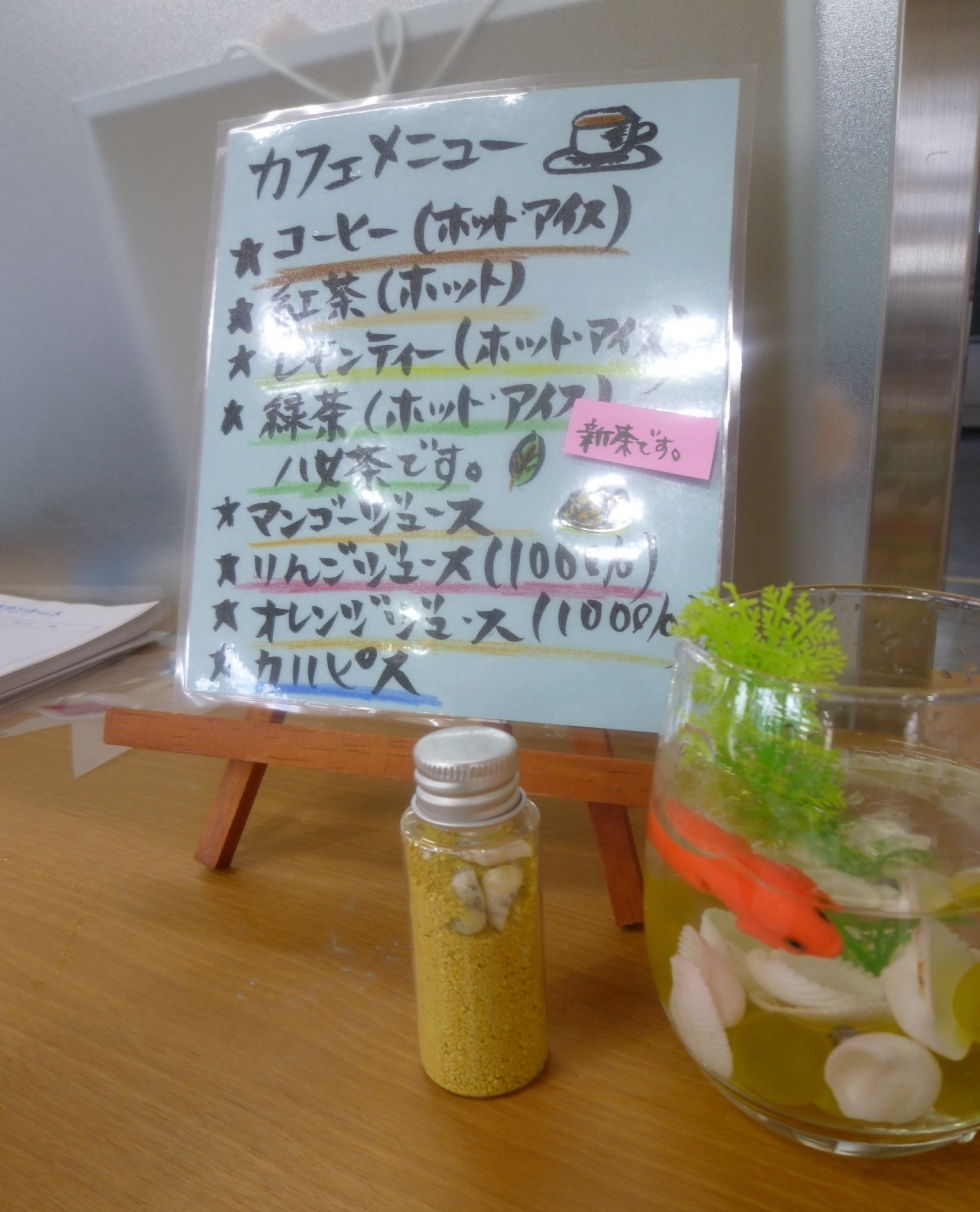 カフェメニュー
★コーヒー(ホット・アイス)
★紅茶(ホット)
★レモンティー(ホット・アイス)
★緑茶(ホット・アイス)
新茶です。
八女茶です。
★マンゴージュース
★りんごジュース(100%)
★オレンジジュース(100%)
★カルピス